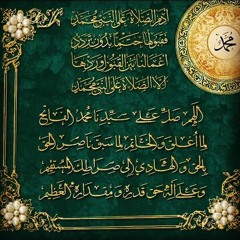 محمد
أدم الصلاة على النبي محمد
فقبولها حتما بدون تردد
أعمالنا بين القبول وردها
إلا الصلاة على النبي محمد
اللهم صل على سيدنا محمد الفاتح
لما أغلق والخاتم لما سبق ناصر الحق
بالحق والهادي إلى صراطك المستقيم
وعلى آله حق قدره ومقداره العظيم